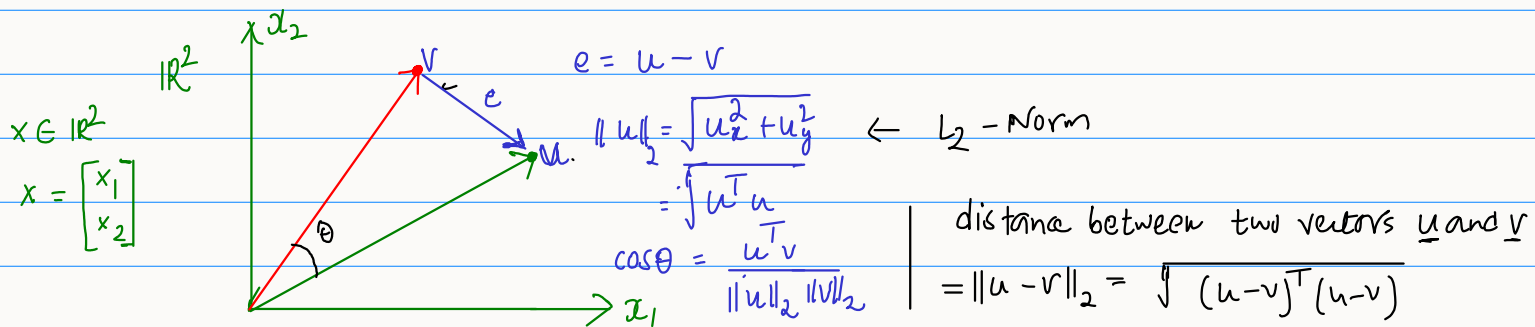 x₂
ℝ²
x ∈ ℝ²
x = [x₁
x₂]
v
e
u.
θ
x₁
e = u - v
‖u‖₂ = √(uₓ² + u_y²) ← L₂ - Norm
= √(uᵀu)
cosθ = uᵀv / ‖u‖₂ ‖v‖₂
distance between two vectors u and v
= ‖u - v‖₂ = √((u-v)ᵀ(u-v))